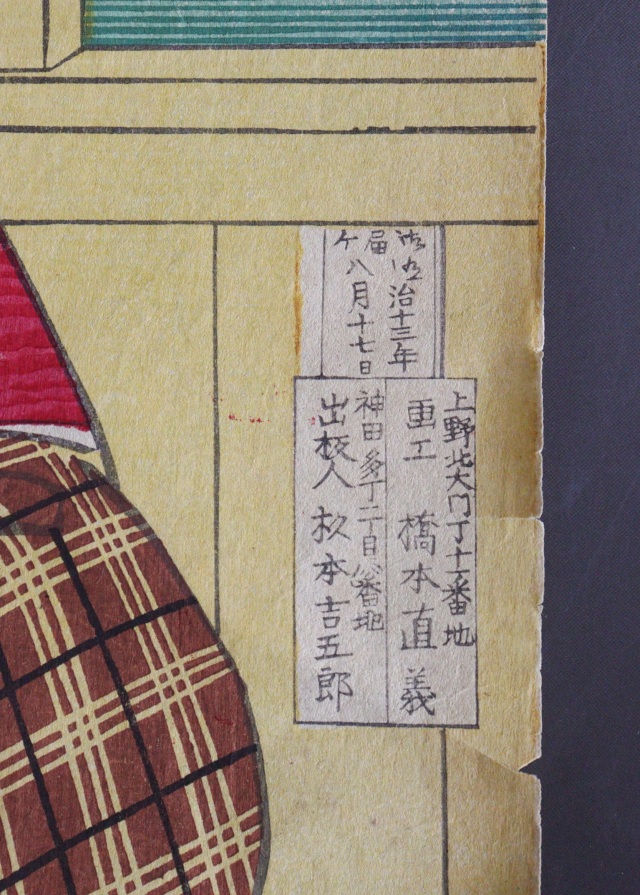 御届
明治十三年
ケ八月十七日
上野北大門丁十一番地
画工 橋本直義
神田多丁二丁目八番地
出板人 松本吉五郎